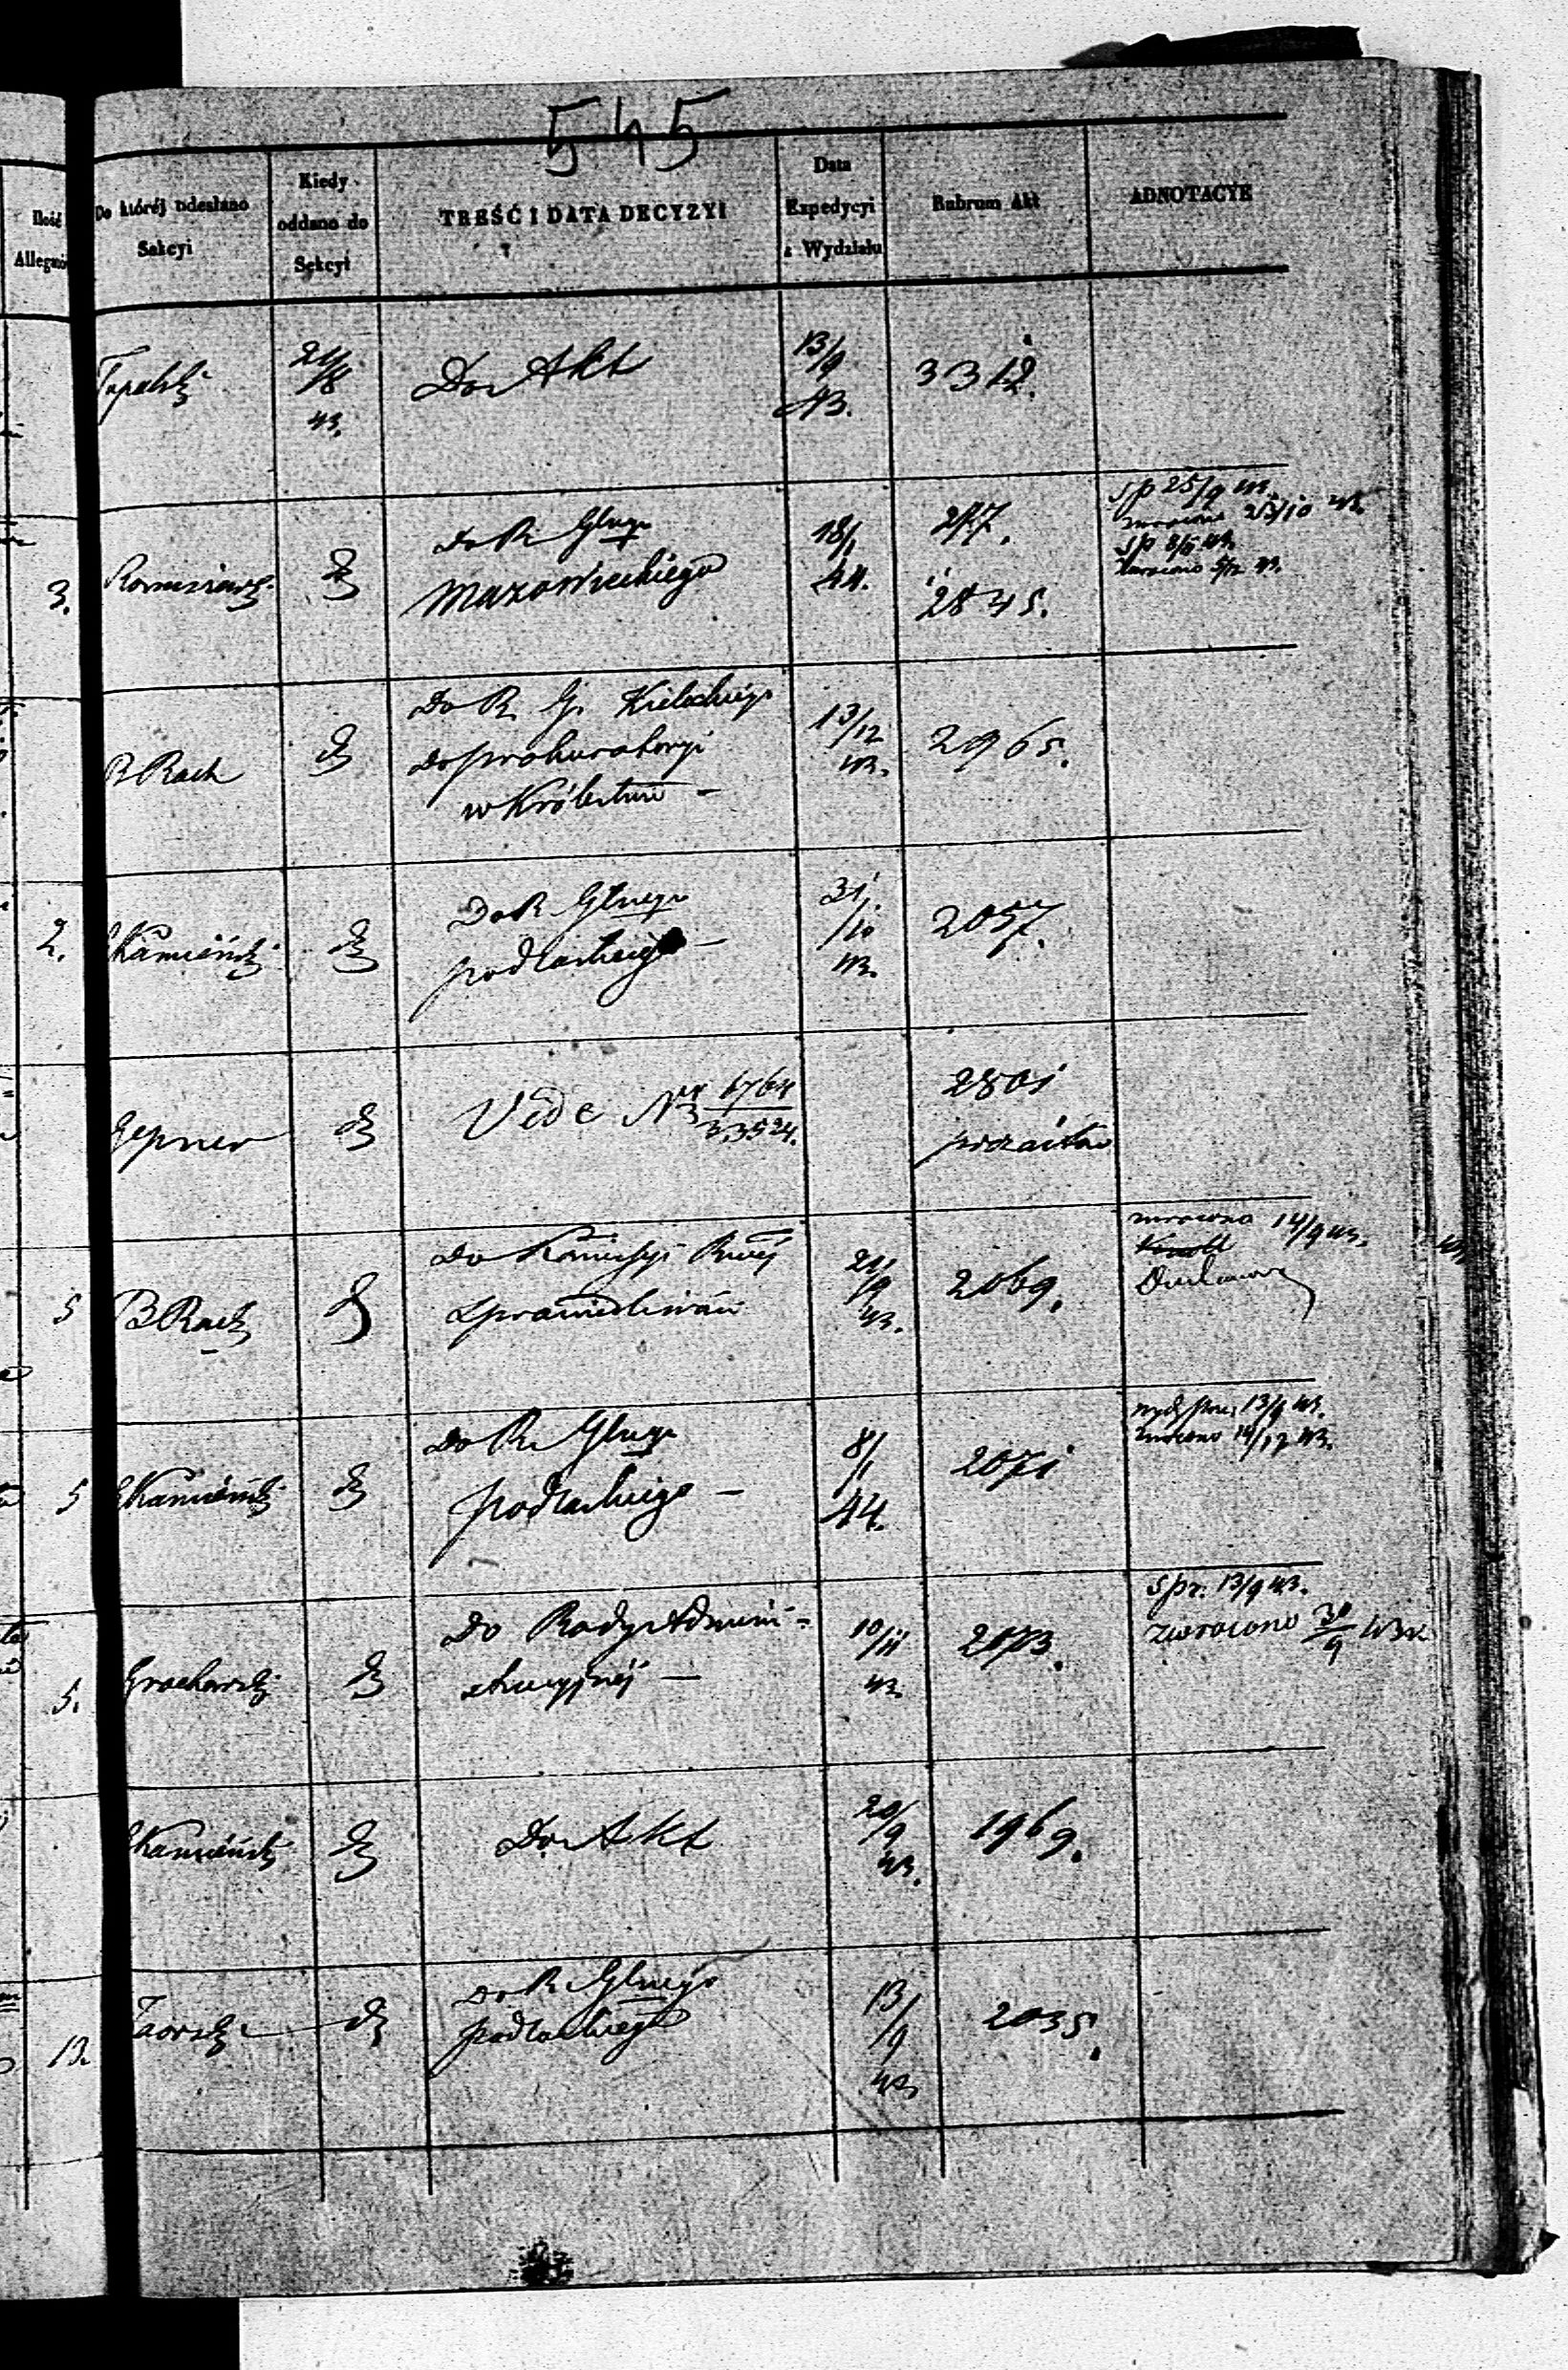 545
Ilość
Allegató
Do któréj odesłano
Sekcyi
Kiedy
oddano do
Sekcyi
TREŚĆ I DATA DECYZYI
Data
Expedycyi
z Wydziału
Rubrum Akt
ADNOTACYE
21/8
43.
Do Akt
13/9
43.
3312.
3.
Do R. Głnego
Mazowieckiego
18/1
44.
277.
2845.
sp 25/9 43.
zwrócono 23/10 43.
zwrócono 5/12 43.
B Rach
Do R. G. Kieleckiego
do prokuratoryi
w Królestwie —
13/12
43.
2965.
2.
Kamieński
Do R. Głnego
podlaskiego —
31/10
43.
2057.
Gepner
Vide Nr 6764
23524.
2801
5
B Rach
Do Komisyi Rwéj
Sprawiedliwości
21/9
43.
2069.
zwrócono 14/9 43.
5
Kamieński
Do R. Głnego
podlaskiego —
8/1
44.
2071
13/9 43.
zwrócono 14/12 43.
5.
Grochowski
Do Rady Admini=
stracyjnéj —
10/11
43
2073.
spr. 13/9 43.
zwrócono 30/9 43
Kamieński
Do Akt
20/9
43.
1969.
13.
Do R. Głnego
podlaskiego
13/9
43
2035.